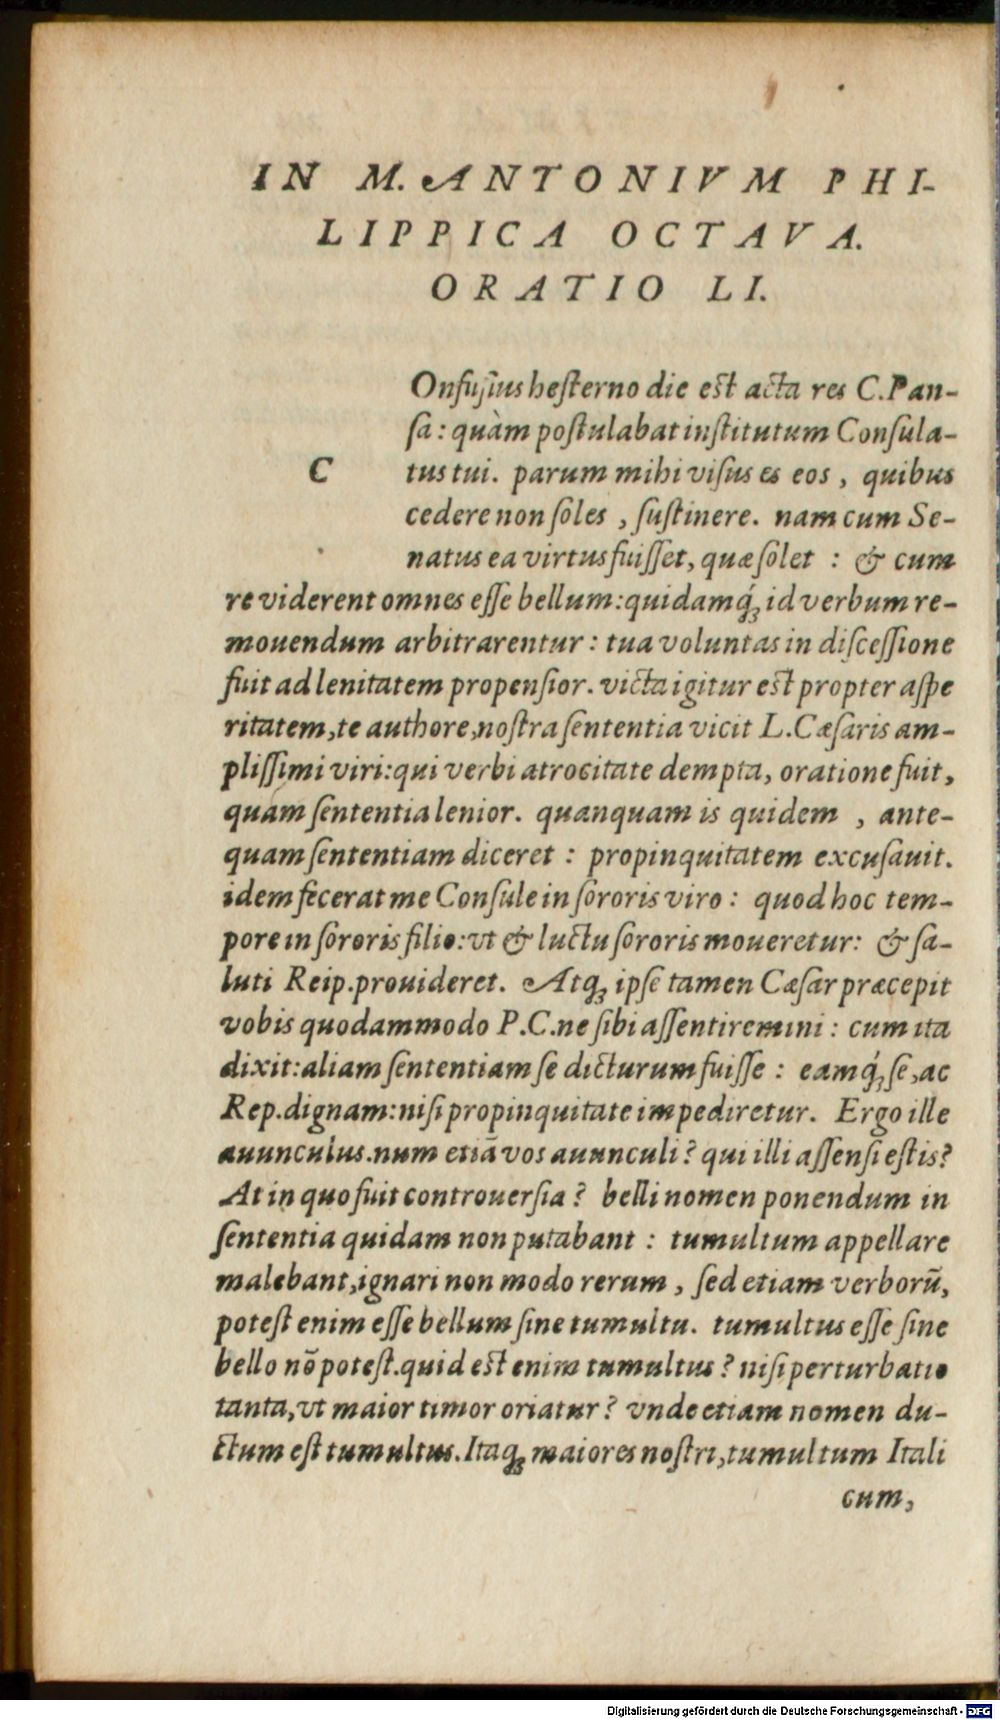 IN M. ANTONIVM PHI-
LIPPICA OCTAVA.
ORATIO LI.
C Onfuſius heſterno die est acta res C. Pan-
ſa: quàm poſtulabat inſtitutum Conſula-
tus tui. parum mihi viſus es eos, quibus
cedere non ſoles, ſuſtinere. nam cum Se-
natus ea virtus fuiſſet, quæ ſolet: & cum
re viderent omnes eſſe bellum: quidamq́; id verbum re-
mouendum arbitrarentur: tua voluntas in diſceſſione
fuit ad lenitatem propenſior. victa igitur est propter aſpe
ritatem, te authore, noſtra ſententia vicit L. Cæſaris am-
pliſſimi viri: qui verbi atrocitate dempta, oratione fuit,
quàm ſententia lenior. quanquam is quidem, ante-
quam ſententiam diceret: propinquitatem excuſauit.
idem fecerat me Conſule in ſororis viro: quod hoc tem-
pore in ſororis filio: vt & luctu ſororis moueretur: & ſa-
luti Reip. prouideret. Atq; ipſe tamen Cæſar præcepit
vobis quodammodo P.C. ne ſibi aſſentiremini: cum ita
dixit: aliam ſententiam ſe dicturum fuiſſe: eamq́; ſe, ac
Rep. dignam: niſi propinquitate impediretur. Ergo ille
auunculus. num etiã vos auunculi? qui illi aſſenſi eſtis?
At in quo fuit controuerſia? belli nomen ponendum in
ſententia quidam non putabant: tumultum appellare
malebant, ignari non modo rerum, ſed etiam verborũ,
poteſt enim eſſe bellum ſine tumultu. tumultus eſſe ſine
bello nõ poteſt. quid est enim tumultus? niſi perturbatio
tanta, vt maior timor oriatur? vnde etiam nomen du-
ctum eſt tumultus. Itaq; maiores noſtri, tumultum Itali
cum,
Digitalisierung gefördert durch die Deutsche Forschungsgemeinschaft - DFG